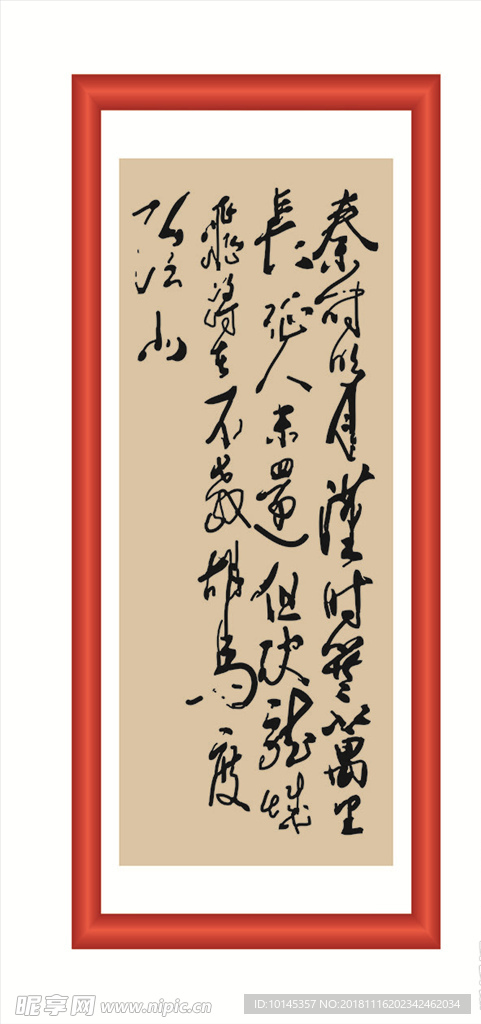 秦时明月漢时關萬里
長征人未還但使龍城
飛將在不教胡馬度
阴山
昵享网 www.nipic.cn
ID:10145357 NO:20181116202342462034